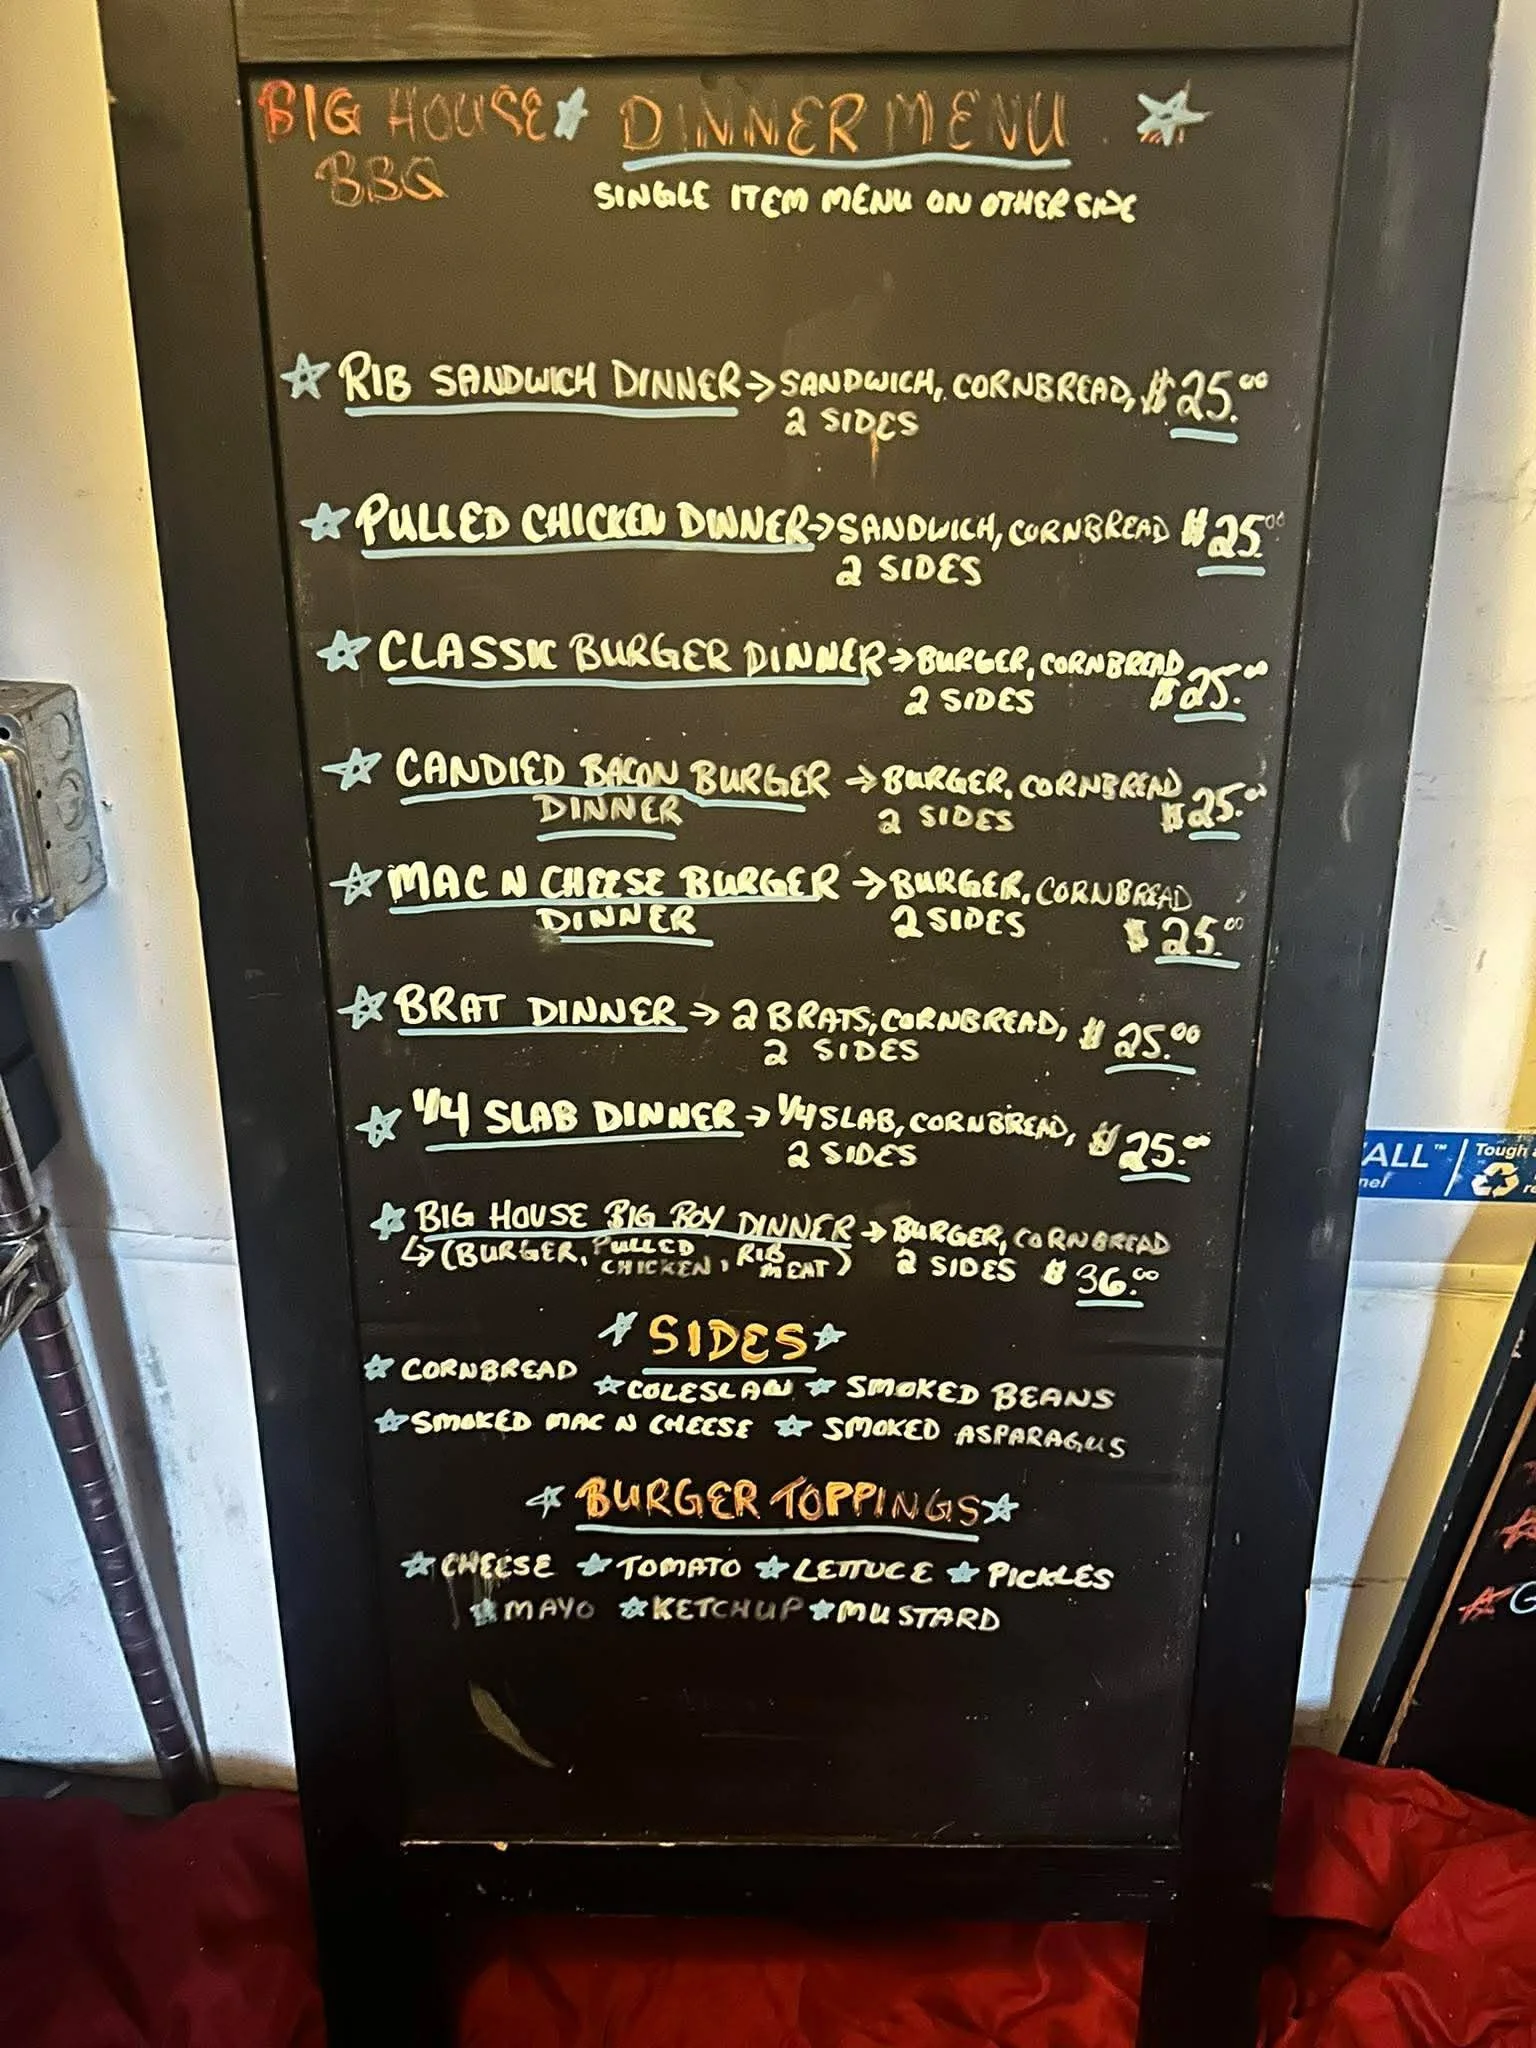 BIG HOUSE DINNER MENU
BBQ
SINGLE ITEM MENU ON OTHER SIDE
RIB SANDWICH DINNER → SANDWICH, CORNBREAD, $25.00
2 SIDES
PULLED CHICKEN DINNER → SANDWICH, CORNBREAD $25.00
2 SIDES
CLASSIC BURGER DINNER → BURGER, CORNBREAD
2 SIDES $25.00
CANDIED BACON BURGER → BURGER, CORNBREAD
DINNER 2 SIDES $25.00
MAC N CHEESE BURGER → BURGER, CORNBREAD
DINNER 2 SIDES $25.00
BRAT DINNER → 2 BRATS, CORNBREAD, $25.00
2 SIDES
1/4 SLAB DINNER → 1/4 SLAB, CORNBREAD, $25.00
2 SIDES
BIG HOUSE BIG BOY DINNER → BURGER, CORNBREAD
↳ (BURGER, PULLED CHICKEN, RIB MEAT) 2 SIDES $36.00
SIDES
CORNBREAD
COLESLAW SMOKED BEANS
SMOKED MAC N CHEESE SMOKED ASPARAGUS
BURGER TOPPINGS
CHEESE TOMATO LETTUCE PICKLES
MAYO KETCHUP MUSTARD
ALL™
Tough